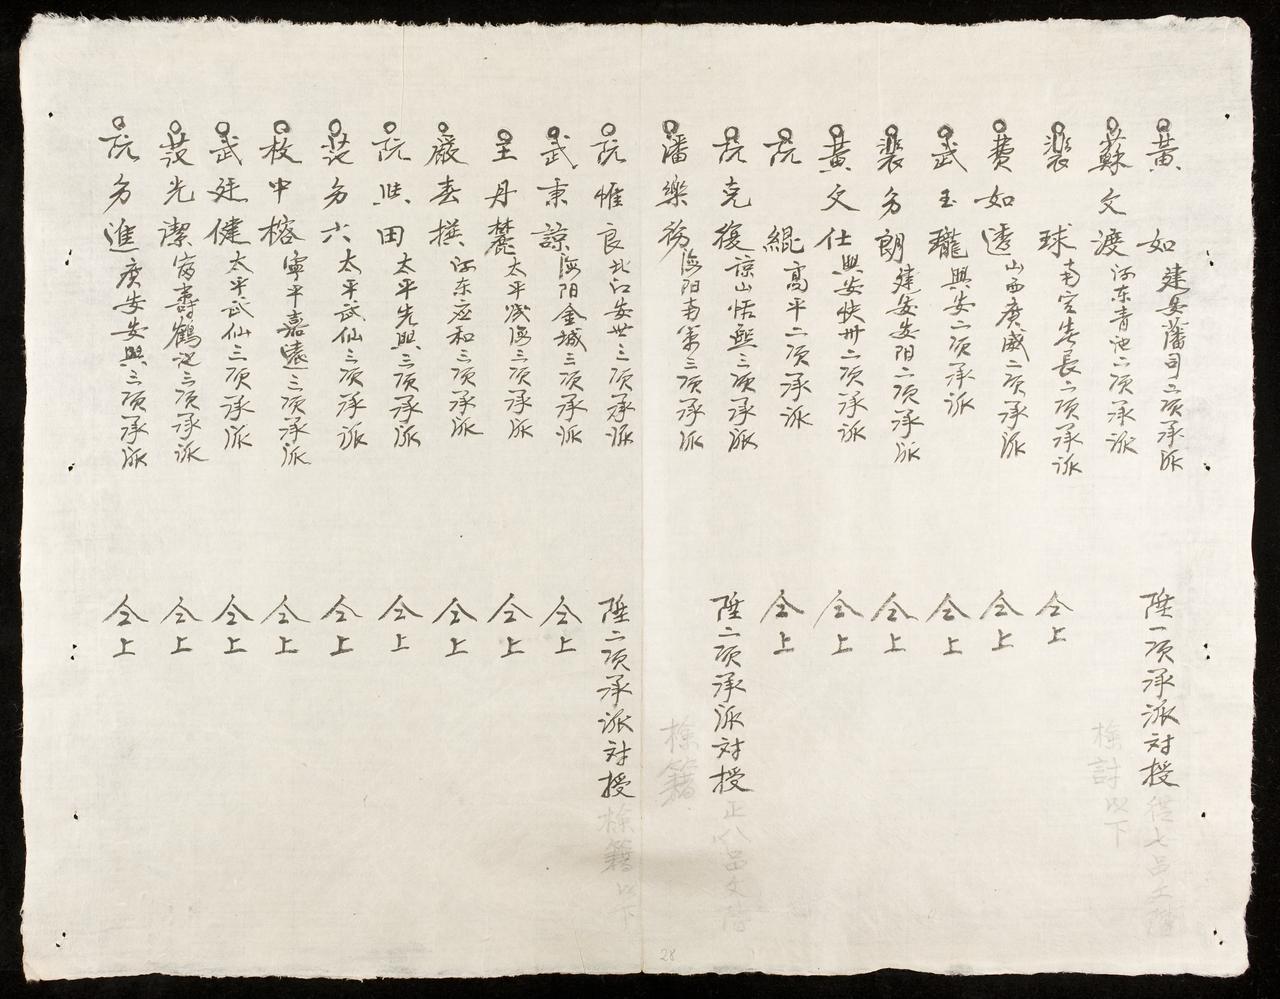 黃 如 建安藩司二項承派 陞一項承派対授 從七品文階
蘇文渡 河东青池二項承派 検討以下
裴 球 南定先長二項承派 仝上
費如透 山西廣威二項承派 仝上
武玉瓏 興安二項承派 仝上
裴多朗 建安安阳二項承派 仝上
黃文仕 興安快卅二項承派 仝上
阮 緄 高平二項承派 仝上
阮克復 諒山恬熙三項承派 陞二項承派対授 正八品文階
潘樂 海阳 三項承派 検籍
阮惟良 北江安世三項承派 陞二項承派対授 検籍以下
武秉諒 海阳金城三項承派 仝上
王丹麓 太平 三項承派 仝上
嚴春撰 河东应和三項承派 仝上
阮熙田 太平先興三項承派 仝上
范多六 太平武仙三項承派 仝上
枚中榕 寧平嘉遠三項承派 仝上
武廷健 太平武仙三項承派 仝上
范光潔 富壽鶴池三項承派 仝上
阮多進 廣安安興三項承派 仝上
28